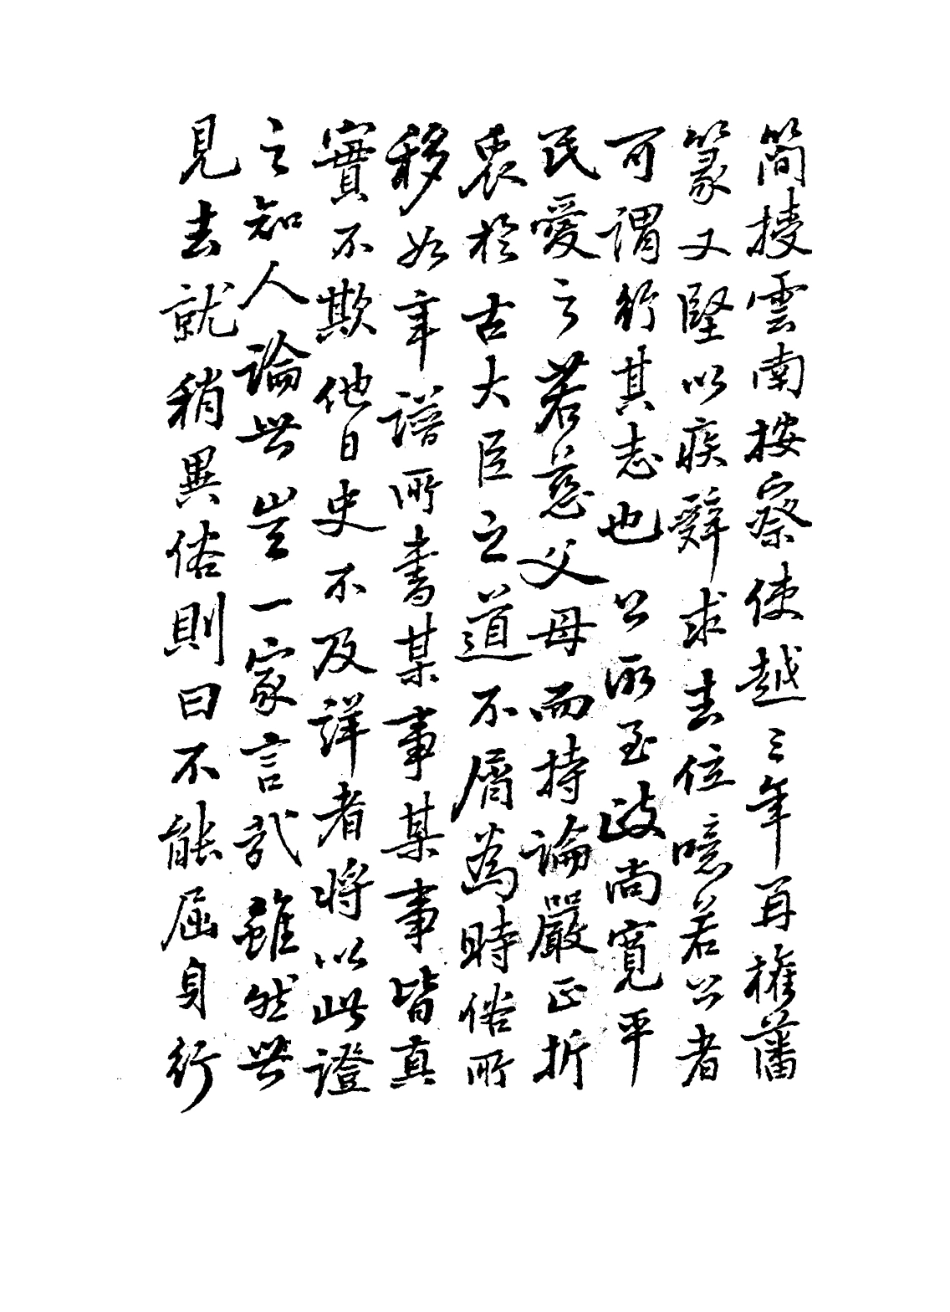 簡授雲南按察使越三年再權藩
篆又堅以疾辭求去位噫若公者
可謂行其志也公所至政尚寬平
民愛之若慈父母而持論嚴正折
衷於古大臣之道不屑為時俗所
移如年譜所書某事某事皆真
實不欺他日史不及詳者將以此證
之知人論世豈一家言哉雖然世
見去就稍異俗則曰不能屈身行